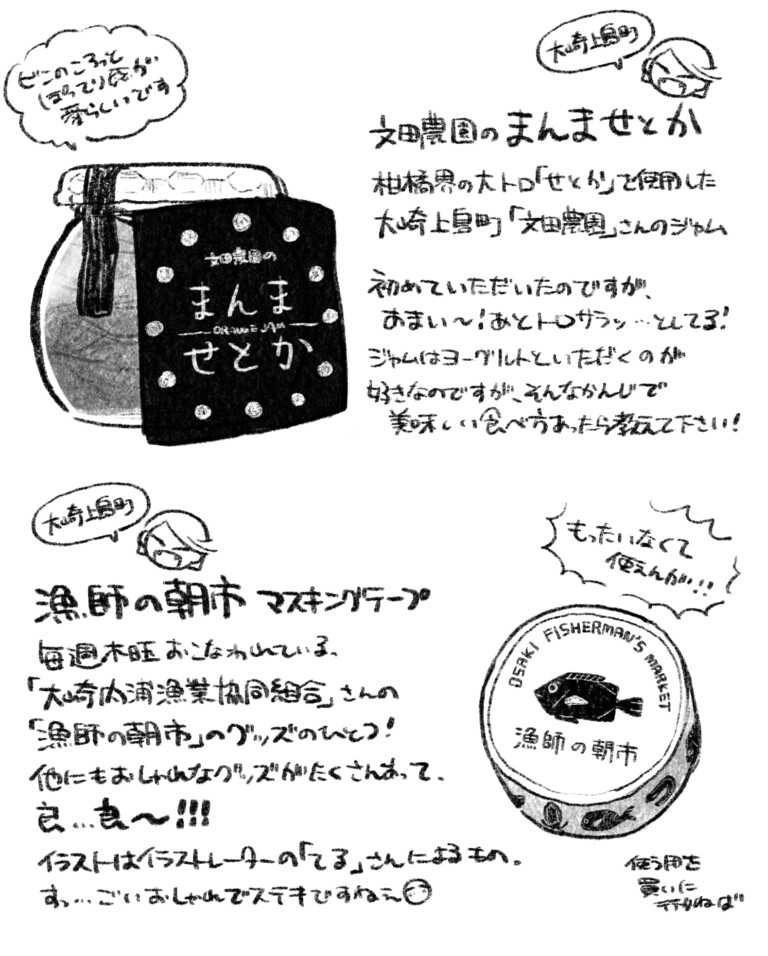 ビンのころっと
ぽってり感が
愛らしいです
大崎上島町
文田農園のまんませとか
柑橘界の大トロ「せとか」で使用した
大崎上島町「文田農園」さんのジャム
初めていただいたのですが、
あまい〜!あとトロサラッ…としてる!
ジャムはヨーグルトといただくのが
好きなのですが、そんなかんじで
美味しい食べ方あったら教えて下さい!
文田農園の
まんま
ORANGE JAM
せとか
大崎上島町
漁師の朝市 マスキングテープ
毎週木旺おこなわれている、
「大崎内浦漁業協同組合」さんの
「漁師の朝市」のグッズのひとつ!
他にもおしゃれなグッズがたくさんあって、
良…良〜!!!
イラストはイラストレーターの「てる」さんによるもの。
すっ…ごいおしゃれでステキですね〜
もったいなくて
使えんが!!
OSAKI FISHERMAN'S MARKET
漁師の朝市
使う用を
買いに
行かねば